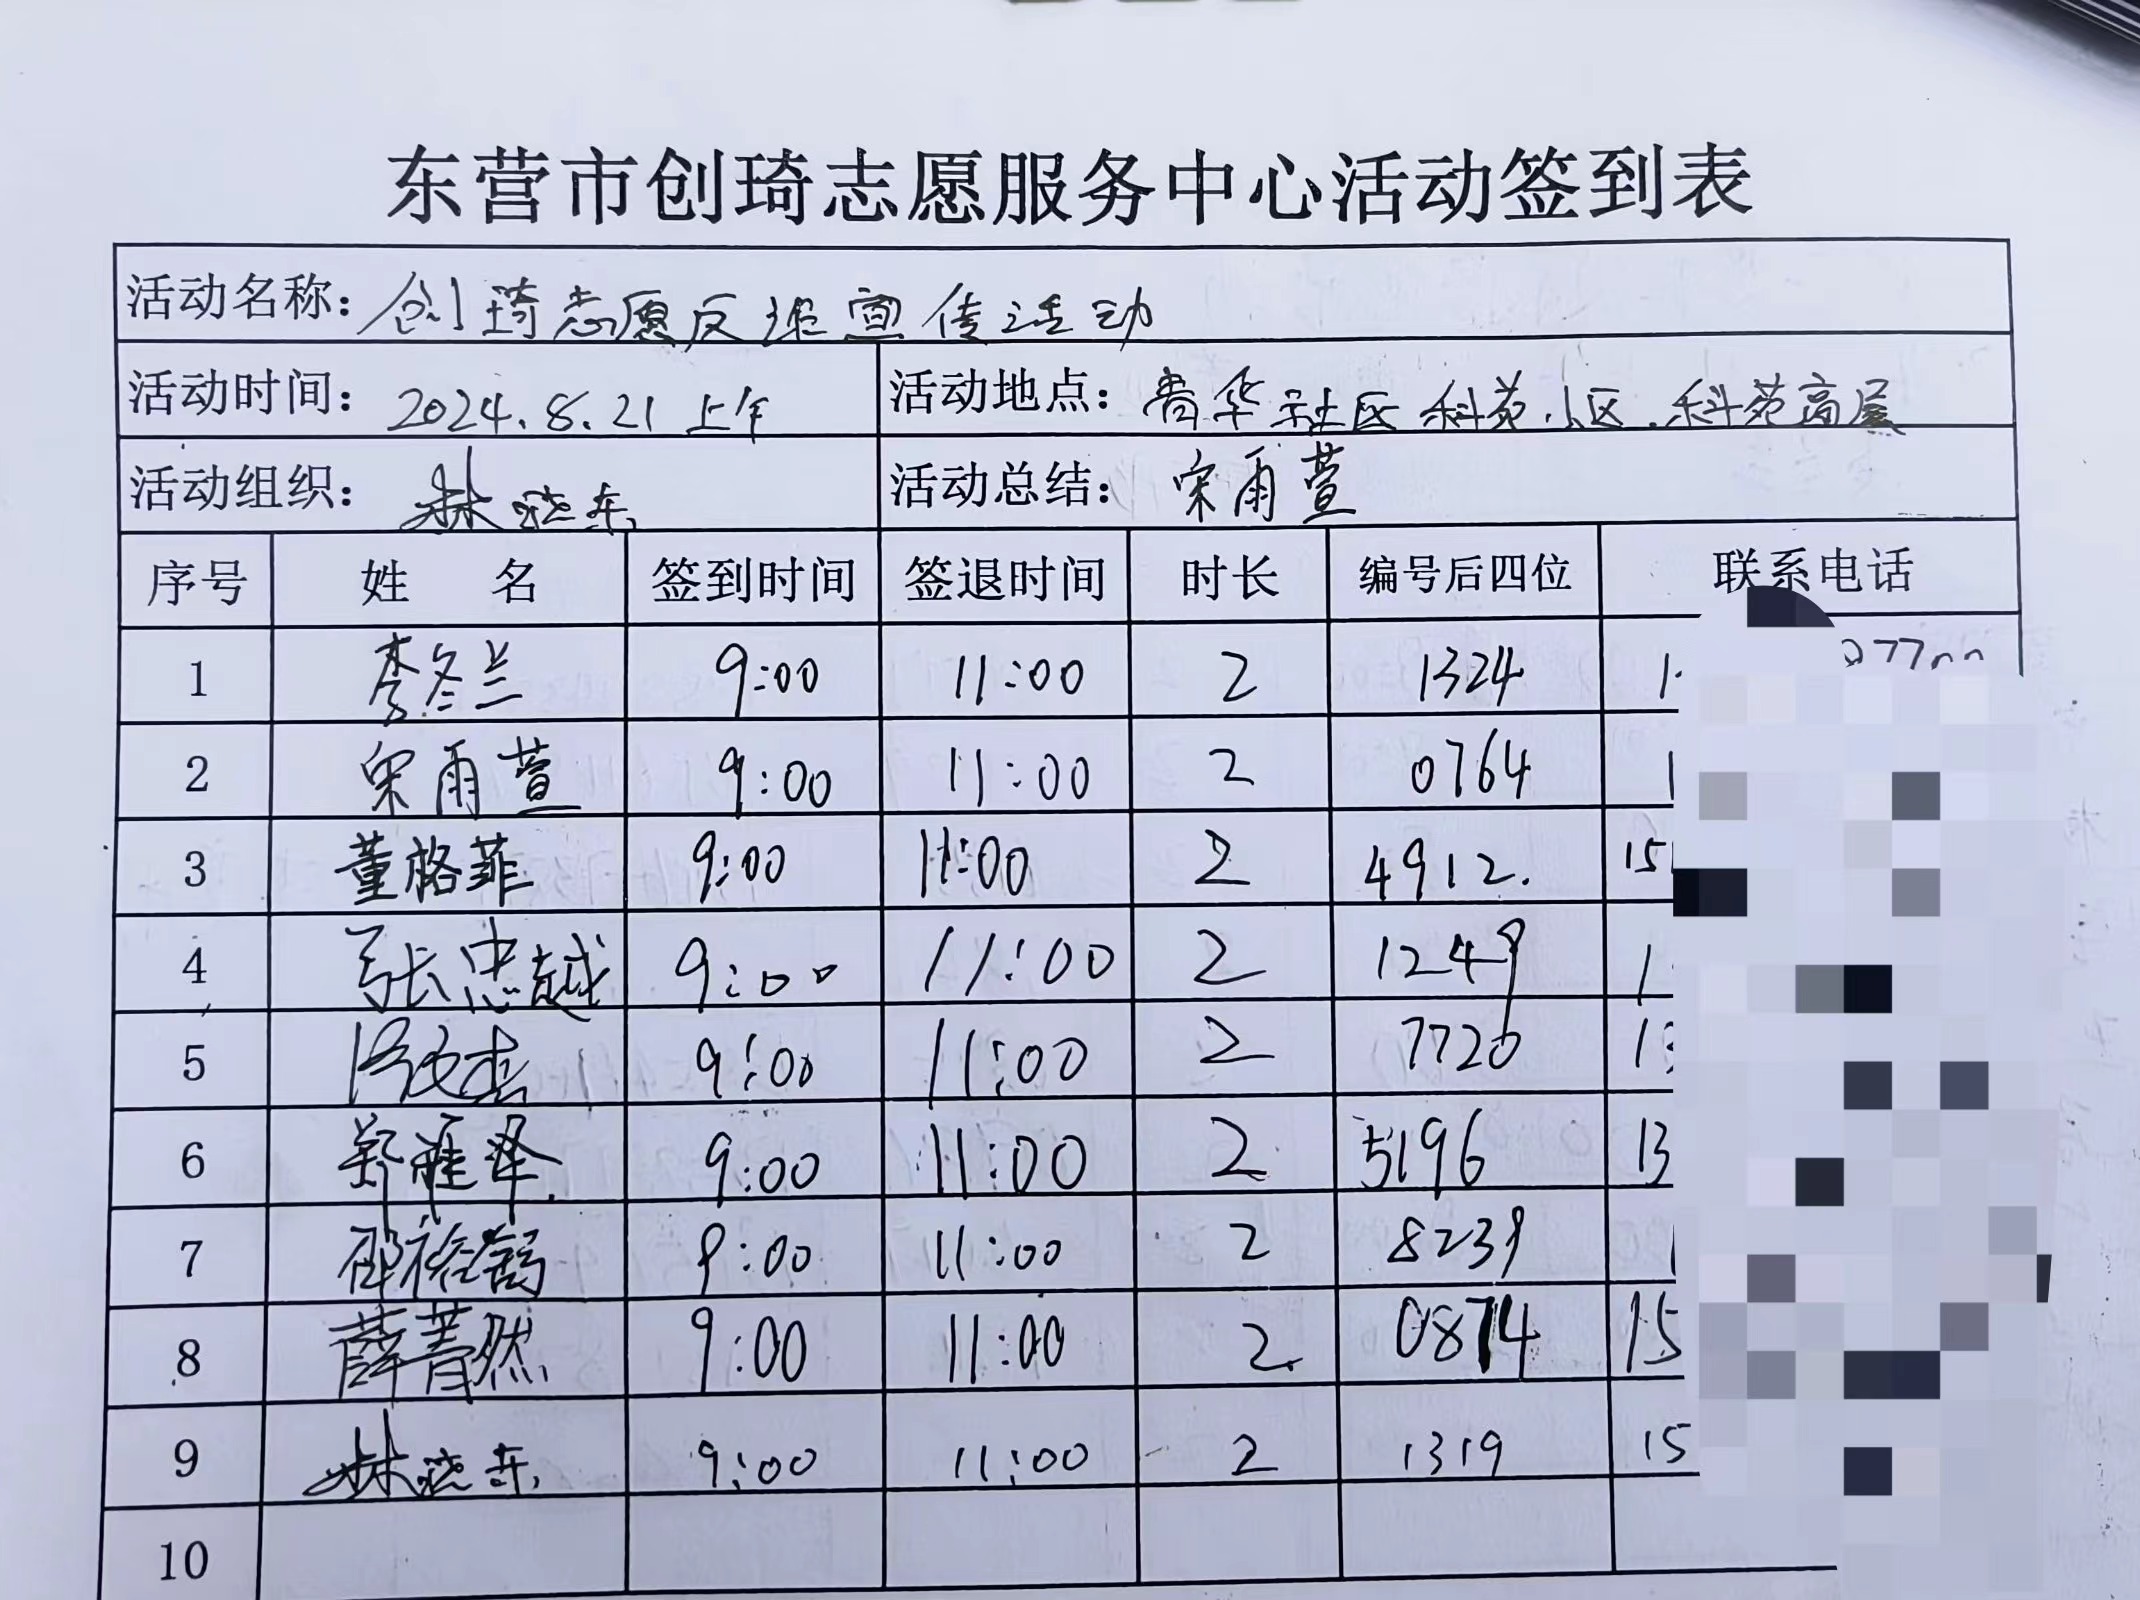 东营市创琦志愿服务中心活动签到表
活动名称：创琦志愿反诈宣传活动
活动时间：2024.8.21 上午 活动地点：菁华社区 科苑小区.科苑高层
活动组织：林晓东 活动总结：宋雨萱
序号 姓 名 签到时间 签退时间 时长 编号后四位 联系电话
1 李冬兰 9:00 11:00 2 1324
2 宋雨萱 9:00 11:00 2 0764
3 董格菲 9:00 11:00 2 4912. 15
4 张忠越 9:00 11:00 2 1249 1
5 9:00 11:00 2 7720 13
6 郑雅泽. 9:00 11:00 2 5196 13
7 邵裕鹤 9:00 11:00 2 8239 1
8 薛菁然 9:00 11:00 2. 0874 15
9 林晓东 9:00 11:00 2 1319 15
10